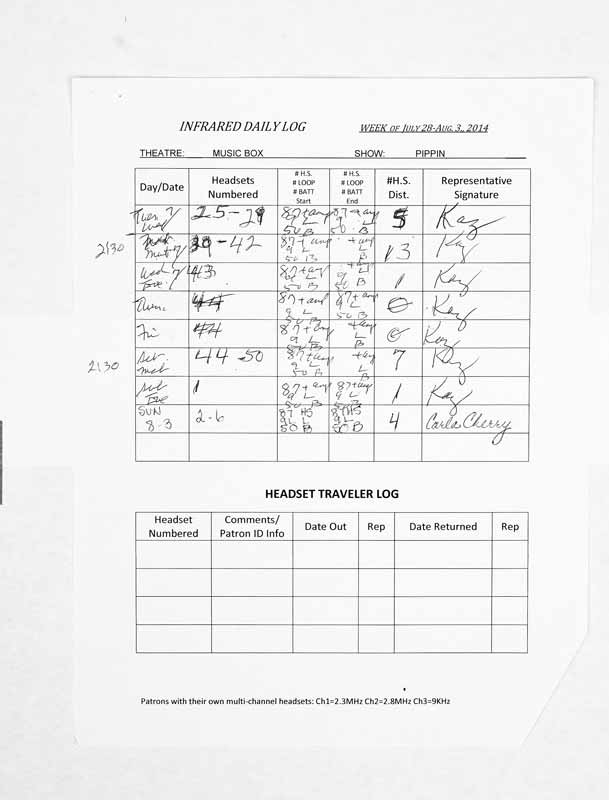 INFRARED DAILY LOG WEEK OF JULY 28-AUG. 3., 2014
THEATRE: MUSIC BOX SHOW: PIPPIN
Day/Date Headsets Numbered # H.S. # LOOP # BATT Start # H.S. # LOOP # BATT End #H.S. Dist. Representative Signature
Tues 25-29 87+amp 9 L 50 B 87+amp 9 L 50 B 5 Kaz
2130 -42 87+amp 9 L 50 B +amp L B 13 Kaz
Wed 43 87+amp 9 L 50 B 9 L 50 B 1 Kaz
Thur. 87+amp 9 L 50 B 87+amp 9 L 50 B 0 Kaz
Fri 87+amp 9 L 50 B +amp L B 0 Kaz
2130 Sat. mat 44-50 87+amp 9 L 50 B +amp L B 7 Kaz
Sat Eve 1 87+amp 9 L 50 B 87+amp 9 L 50 B 1 Kaz
SUN 8-3 2-6 87 HS 9L 50 B 87HS 9L 50 B 4 Carla Cherry
HEADSET TRAVELER LOG
Headset Numbered Comments/ Patron ID Info Date Out Rep Date Returned Rep
Patrons with their own multi-channel headsets: Ch1=2.3MHz Ch2=2.8MHz Ch3=9KHz